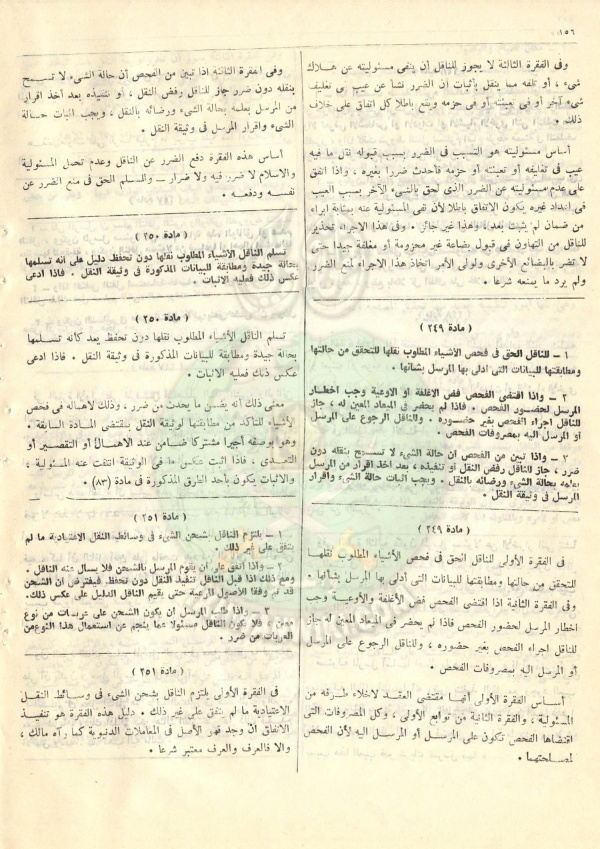 ١٥٦
وفى الفقرة الثالثة لا يجوز للناقل أن ينفى مسئوليته عن هلاك
شىء ، أو تلفه مما ينقل باثبات ان الضرر نشأ عن عيب فى تغليف
شىء آخر أو فى تعبئته أو فى حزمه ويقع باطلا كل اتفاق على خلاف
ذلك .
أساس مسئوليته هو التسبب فى الضرر بسبب قبوله نقل ما فيه
عيب فى تغليفه أو تعبئته أو حزمه فأحدث ضررا بغيره ، واذا اتفق
على عدم مسئوليته عن الضرر الذى لحق بالشىء الآخر بسبب العيب
فى اعداد غيره يكون الاتفاق باطلا لأن نفى المسئولية عنه بمثابة ابراء
من ضمان لم يثبت بعد ، وهذا غير جائز . وفى هذا الاجراء تحذير
للناقل من التهاون فى قبول بضاعة غير محزومة أو مغلفة جيدا حتى
لا تضر بالبضائع الأخرى ولولى الأمر اتخاذ هذا الاجراء لمنع الضرر
ولم يرد ما يمنعه شرعا .
( مادة ٢٤٩ )
١ – للناقل الحق فى فحص الأشياء المطلوب نقلها للتحقق من حالتها
ومطابقتها للبيانات التى ادلى بها المرسل بشأنها .
٢ – واذا اقتضى الفحص فض الاغلفة او الاوعية وجب اخطار
المرسل لحضور الفحص . فاذا لم يحضر فى الميعاد المعين له ، جاز
للناقل اجراء الفحص بغير حضوره . وللناقل الرجوع على المرسل
أو المرسل اليه بمصروفات الفحص .
٣ – واذا تبين من الفحص ان حالة الشىء لا تسمح بنقله دون
ضرر ، جاز للناقل رفض النقل أو تنفيذه ، بعد اخذ اقرار من المرسل
بعلمه بحالة الشىء ورضائه بالنقل . ويجب اثبات حالة الشىء واقرار
المرسل فى وثيقة النقل .
( مادة ٢٤٩ )
فى الفقرة الأولى للناقل الحق فى فحص الأشياء المطلوب نقلها
للتحقق من حالتها ومطابقتها للبيانات التى أدلى بها المرسل بشأنها .
وفى الفقرة الثانية اذا اقتضى الفحص فض الأغلفة والأوعية وجب
اخطار المرسل لحضور الفحص فاذا لم يحضر فى الميعاد المعين له جاز
للناقل اجراء الفحص بغير حضوره ، وللناقل الرجوع على المرسل
أو المرسل اليه بمصروفات الفحص .
أساس الفقرة الأولى أنها مقتضى العقد لاخلاء طرفه من
المسئولية ، والفقرة الثانية من توابع الأولى ، وكل المصروفات التى
اقتضاها الفحص تكون على المرسل أو المرسل اليه لأن الفحص
لمصلحتهما .
وفى الفقرة الثالثة اذا تبين من الفحص أن حالة الشىء لا تسمح
بنقله دون ضرر جاز للناقل رفض النقل ، أو تنفيذه بعد أخذ اقرار
من المرسل بعلمه بحالة الشىء ورضائه بالنقل ، ويجب اثبات حالة
الشىء واقرار المرسل فى وثيقة النقل .
أساس هذه الفقرة دفع الضرر عن الناقل وعدم تحمل المسئولية
والاسلام لا ضرر فيه ولا ضرار – وللمسلم الحق فى منع الضرر عن
نفسه ودفعه .
( مادة ٢٥٠ )
تسلم الناقل الأشياء المطلوب نقلها دون تحفظ دليل على انه تسلمها
بحالة جيدة ومطابقة للبيانات المذكورة فى وثيقة النقل . فاذا ادعى
عكس ذلك فعليه الاثبات .
( مادة ٢٥٠ )
تسلم الناقل الأشياء المطلوب نقلها دون تحفظ يعد كأنه تسلمها
بحالة جيدة ومطابقة للبيانات المذكورة فى وثيقة النقل . فاذا ادعى
عكس ذلك فعليه الاثبات .
معنى ذلك أنه يضمن ما يحدث من ضرر ، وذلك لاهماله فى فحص
الأشياء للتأكد من مطابقتها لوثيقة النقل بمقتضى المادة السابقة .
وهو بوصفه أجيرا مشتركا ضامن عند الاهمال أو التقصير أو
التعدى ، فاذا اثبت عكس ما فى الوثيقة انتفت عنه المسئولية ،
والاثبات يكون بأحد الطرق المذكورة فى مادة (٨٣) .
( مادة ٢٥١ )
١ – يلتزم الناقل بشحن الشىء فى وسائط النقل الاعتيادية ما لم
يتفق على غير ذلك .
٢ – واذا اتفق على ان يقوم المرسل بالشحن فلا يسال عنه الناقل .
ومع ذلك اذا قبل الناقل تنفيذ النقل دون تحفظ فيفترض ان الشحن
قد تم وفقا الأصول المرعية حتى يقيم الناقل الدليل على عكس ذلك .
٣ – واذا طلب المرسل ان يكون الشحن على عربات من نوع
معين ، فلا يكون الناقل مسئولا عما ينجم عن استعمال هذا النوع من
العربات من ضرر .
( مادة ٢٥١ )
فى الفقرة الأولى يلتزم الناقل بشحن الشىء فى وسائط النقل
الاعتيادية ما لم يتفق على غير ذلك . دليل هذه الفقرة هو تنفيذ
الاتفاق ان وجد فهو الأصل فى المعاملات الدنيوية كما رآه مالك ،
والا فالعرف والعرف معتبر شرعا .